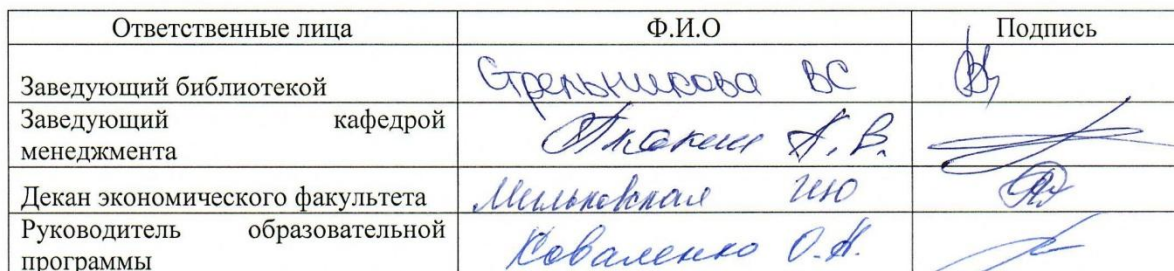 Ответственные лица Ф.И.О Подпись
Заведующий библиотекой Стрельникова ВС
Заведующий кафедрой
менеджмента А.В.
Декан экономического факультета Мильковская ИЮ
Руководитель образовательной
программы Коваленко О.А.